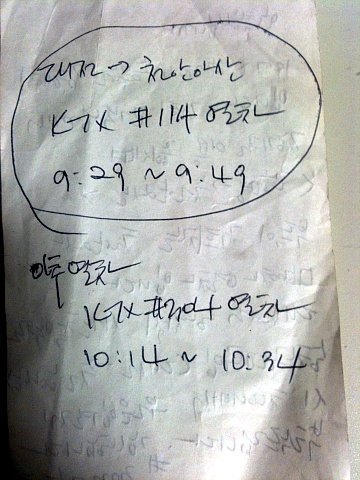 대전 → 천안아산
KTX #114 열차
9:29 ~ 9:49
이후 열차
KTX #304 열차
10:14 ~ 10:34